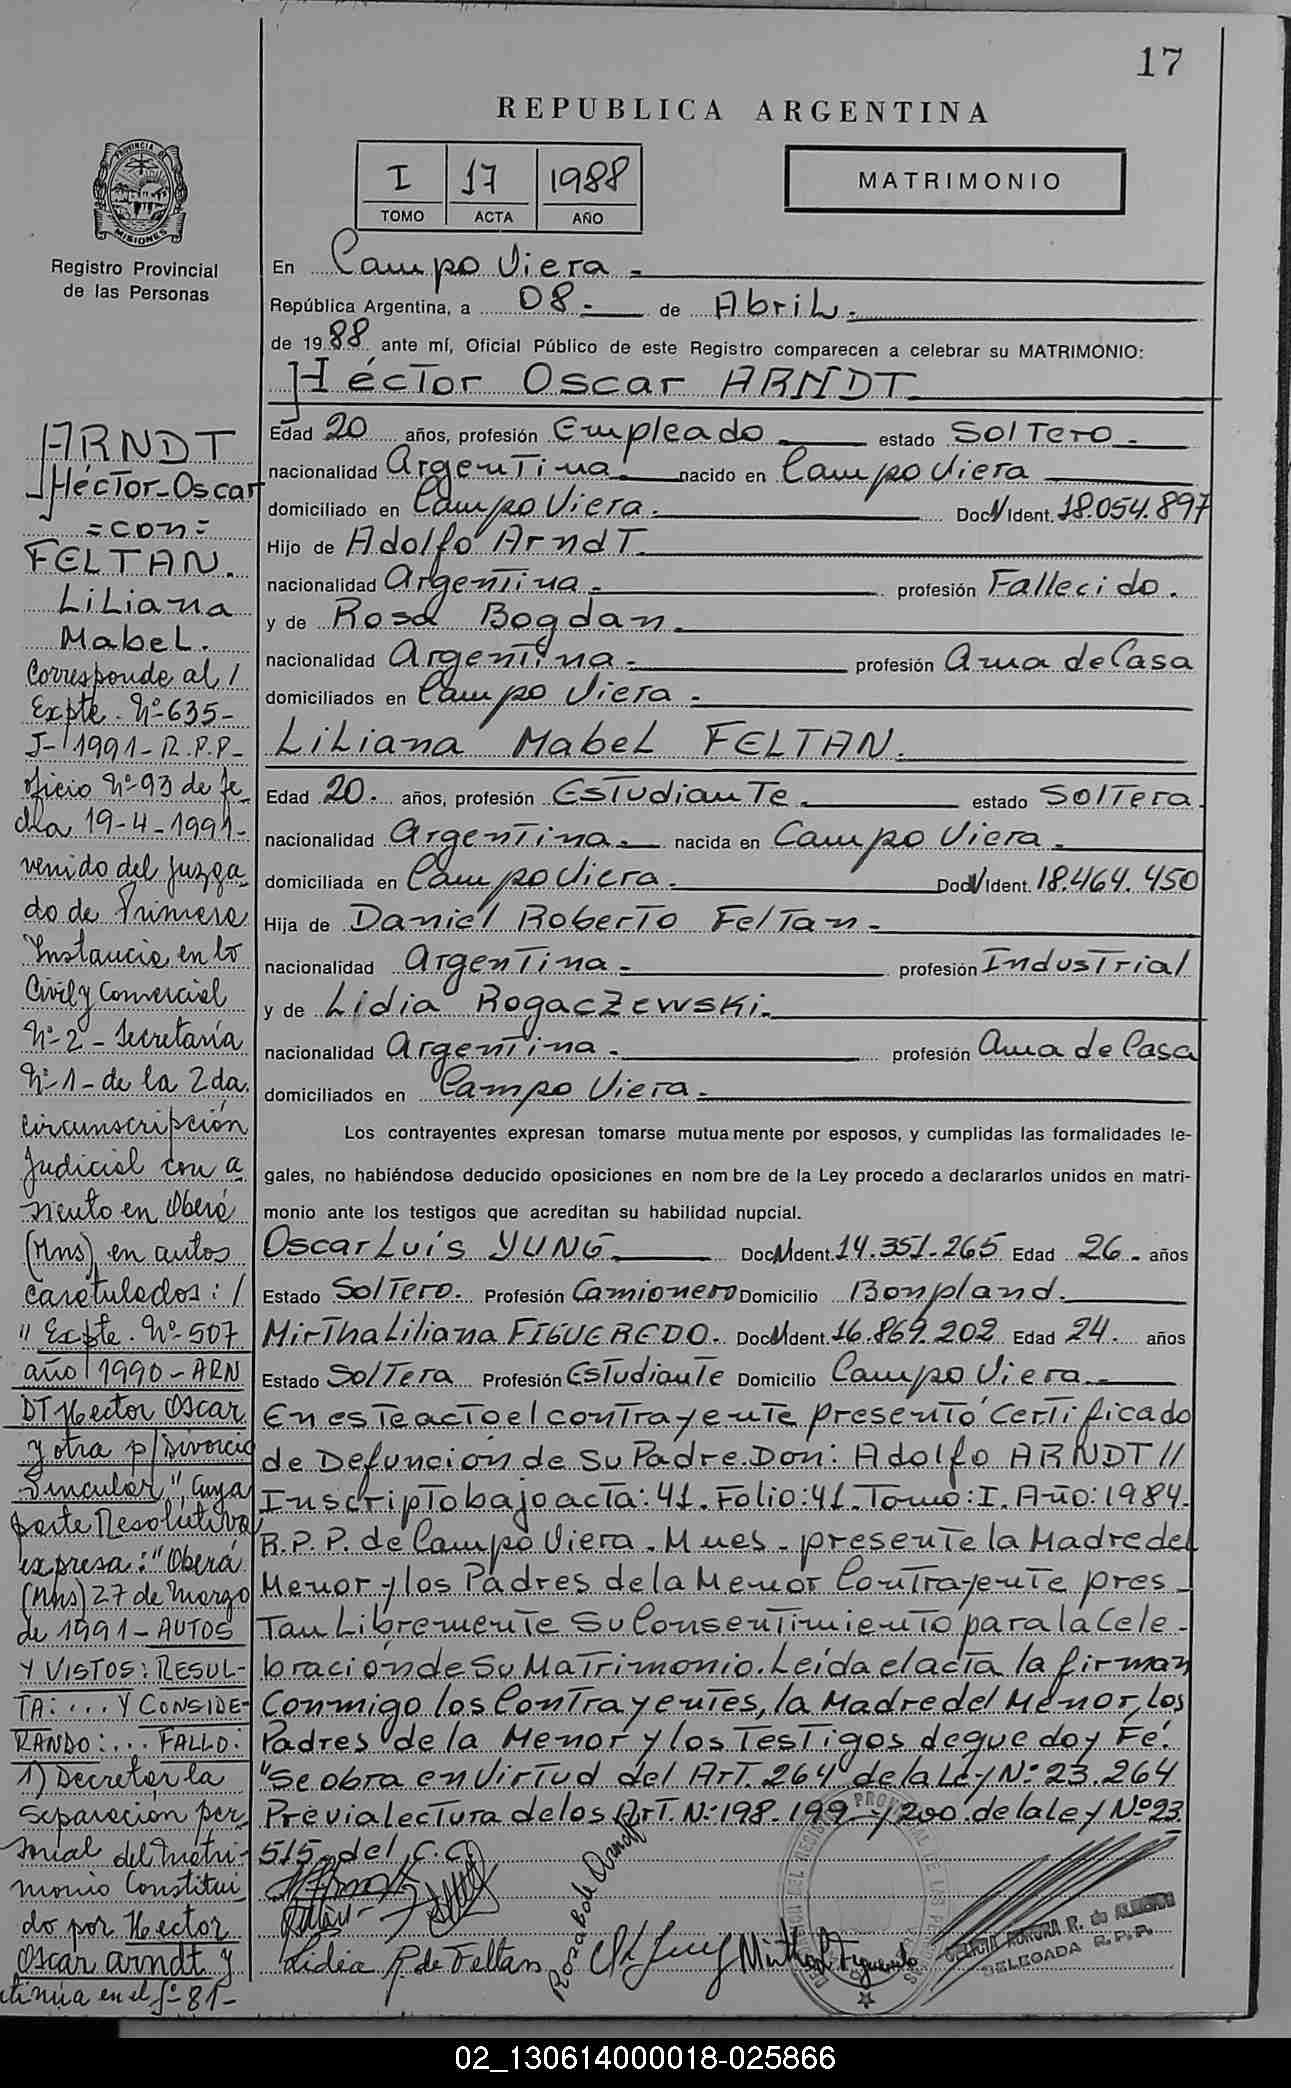 17
REPUBLICA ARGENTINA
PROVINCIA DE
MISIONES
Registro Provincial
de las Personas
I 17 1988
TOMO ACTA AÑO
MATRIMONIO
En Campo Viera.-
República Argentina, a 08.- de Abril.-
de 1988 ante mí, Oficial Público de este Registro comparecen a celebrar su MATRIMONIO:
Héctor Oscar ARNDT.
Edad 20 años, profesión Empleado estado Soltero.-
nacionalidad Argentina.- nacido en Campo Viera
domiciliado en Campo Viera. Doc. N Ident. 18.054.897
Hijo de Adolfo Arndt.
nacionalidad Argentina.- profesión Fallecido.
y de Rosa Bogdan.
nacionalidad Argentina.- profesión Ama de Casa
domiciliados en Campo Viera.-
Liliana Mabel FELTAN.
Edad 20.- años, profesión Estudiante estado Soltera.
nacionalidad Argentina.- nacida en Campo Viera.
domiciliada en Campo Viera.- Doc. N Ident. 18.464.450
Hija de Daniel Roberto Feltan.-
nacionalidad Argentina.- profesión Industrial
y de Lidia Rogaczewski.
nacionalidad Argentina.- profesión Ama de Casa
domiciliados en Campo Viera.-
Los contrayentes expresan tomarse mutuamente por esposos, y cumplidas las formalidades le-
gales, no habiéndose deducido oposiciones en nombre de la Ley procedo a declararlos unidos en matri-
monio ante los testigos que acreditan su habilidad nupcial.
Oscar Luis YUNG Doc. N Ident. 14.351.265 Edad 26.- años
Estado Soltero. Profesión Camionero Domicilio Bonpland.
Mirtha Liliana FIGUEREDO. Doc. N Ident. 16.869.202 Edad 24. años
Estado Soltera Profesión Estudiante Domicilio Campo Viera.-
En este acto el contrayente presentó Certificado
de Defunción de Su Padre. Don: Adolfo ARNDT //
Inscripto bajo acta: 41. Folio: 41. Tomo: I. Año: 1984.
R.P.P. de Campo Viera. Mnes. presente la Madre del
Menor y los Padres de la Menor Contrayente pres-
tan Libremente Su Consentimiento para la Cele-
bración de Su Matrimonio. Leída el acta la firman
Conmigo los Contrayentes, la Madre del Menor, los
Padres de la Menor y los Testigos de que doy Fé.
"Se obra en Virtud del Art. 264 de la Ley Nº 23.264
Previa lectura de los Art. Nº 198-199 y 200. de la ley Nº 23
515 del C.C.
Rosa B de Arndt
Lidia R. de Feltan
Mirtha L Figueredo
DELICIA AURORA R. de
DELEGADA R.P.P.
ARNDT
Héctor-Oscar
=con=
FELTAN.
Liliana
Mabel.
Corresponde al /
Expte. Nº 635-
J-1991-R.P.P-
oficio Nº 93 de fe-
cha 19-4-1991-
venido del Juzga-
do de Primera
Instancia en lo
Civil y Comercial
Nº 2 - Secretaría
Nº 1 - de la 2da.
Circunscripción
Judicial con a
siento en Oberá
(Mns) en autos
caratulados: /
"Expte. Nº 507
año 1990 - ARN
DT Hector Oscar
y otra p/Divorcio
Vincular", Cuya
parte Resolutiva
expresa: "Oberá
(Mns) 27 de Marzo
de 1991 - AUTOS
Y VISTOS: RESUL-
TA: ... Y CONSIDE-
RANDO: ... FALLO:
1) Decretar la
Separación per-
sonal del Matri-
monio Constitui
do por Hector
Oscar Arndt y
tinúa en el fº 81-
02_130614000018-025866